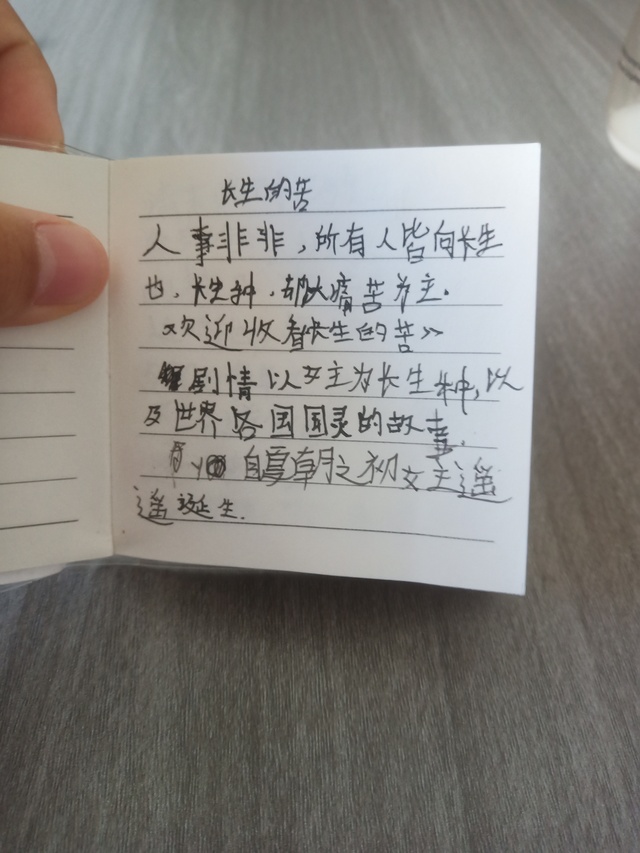 长生的苦
人事非非，所有人皆向长生
也，长生种，却以痛苦为主.
《欢迎收看长生的苦》
剧情以女主为长生种，以
及世界各国国灵的故事.
自夏朝之初女主遥
遥诞生.